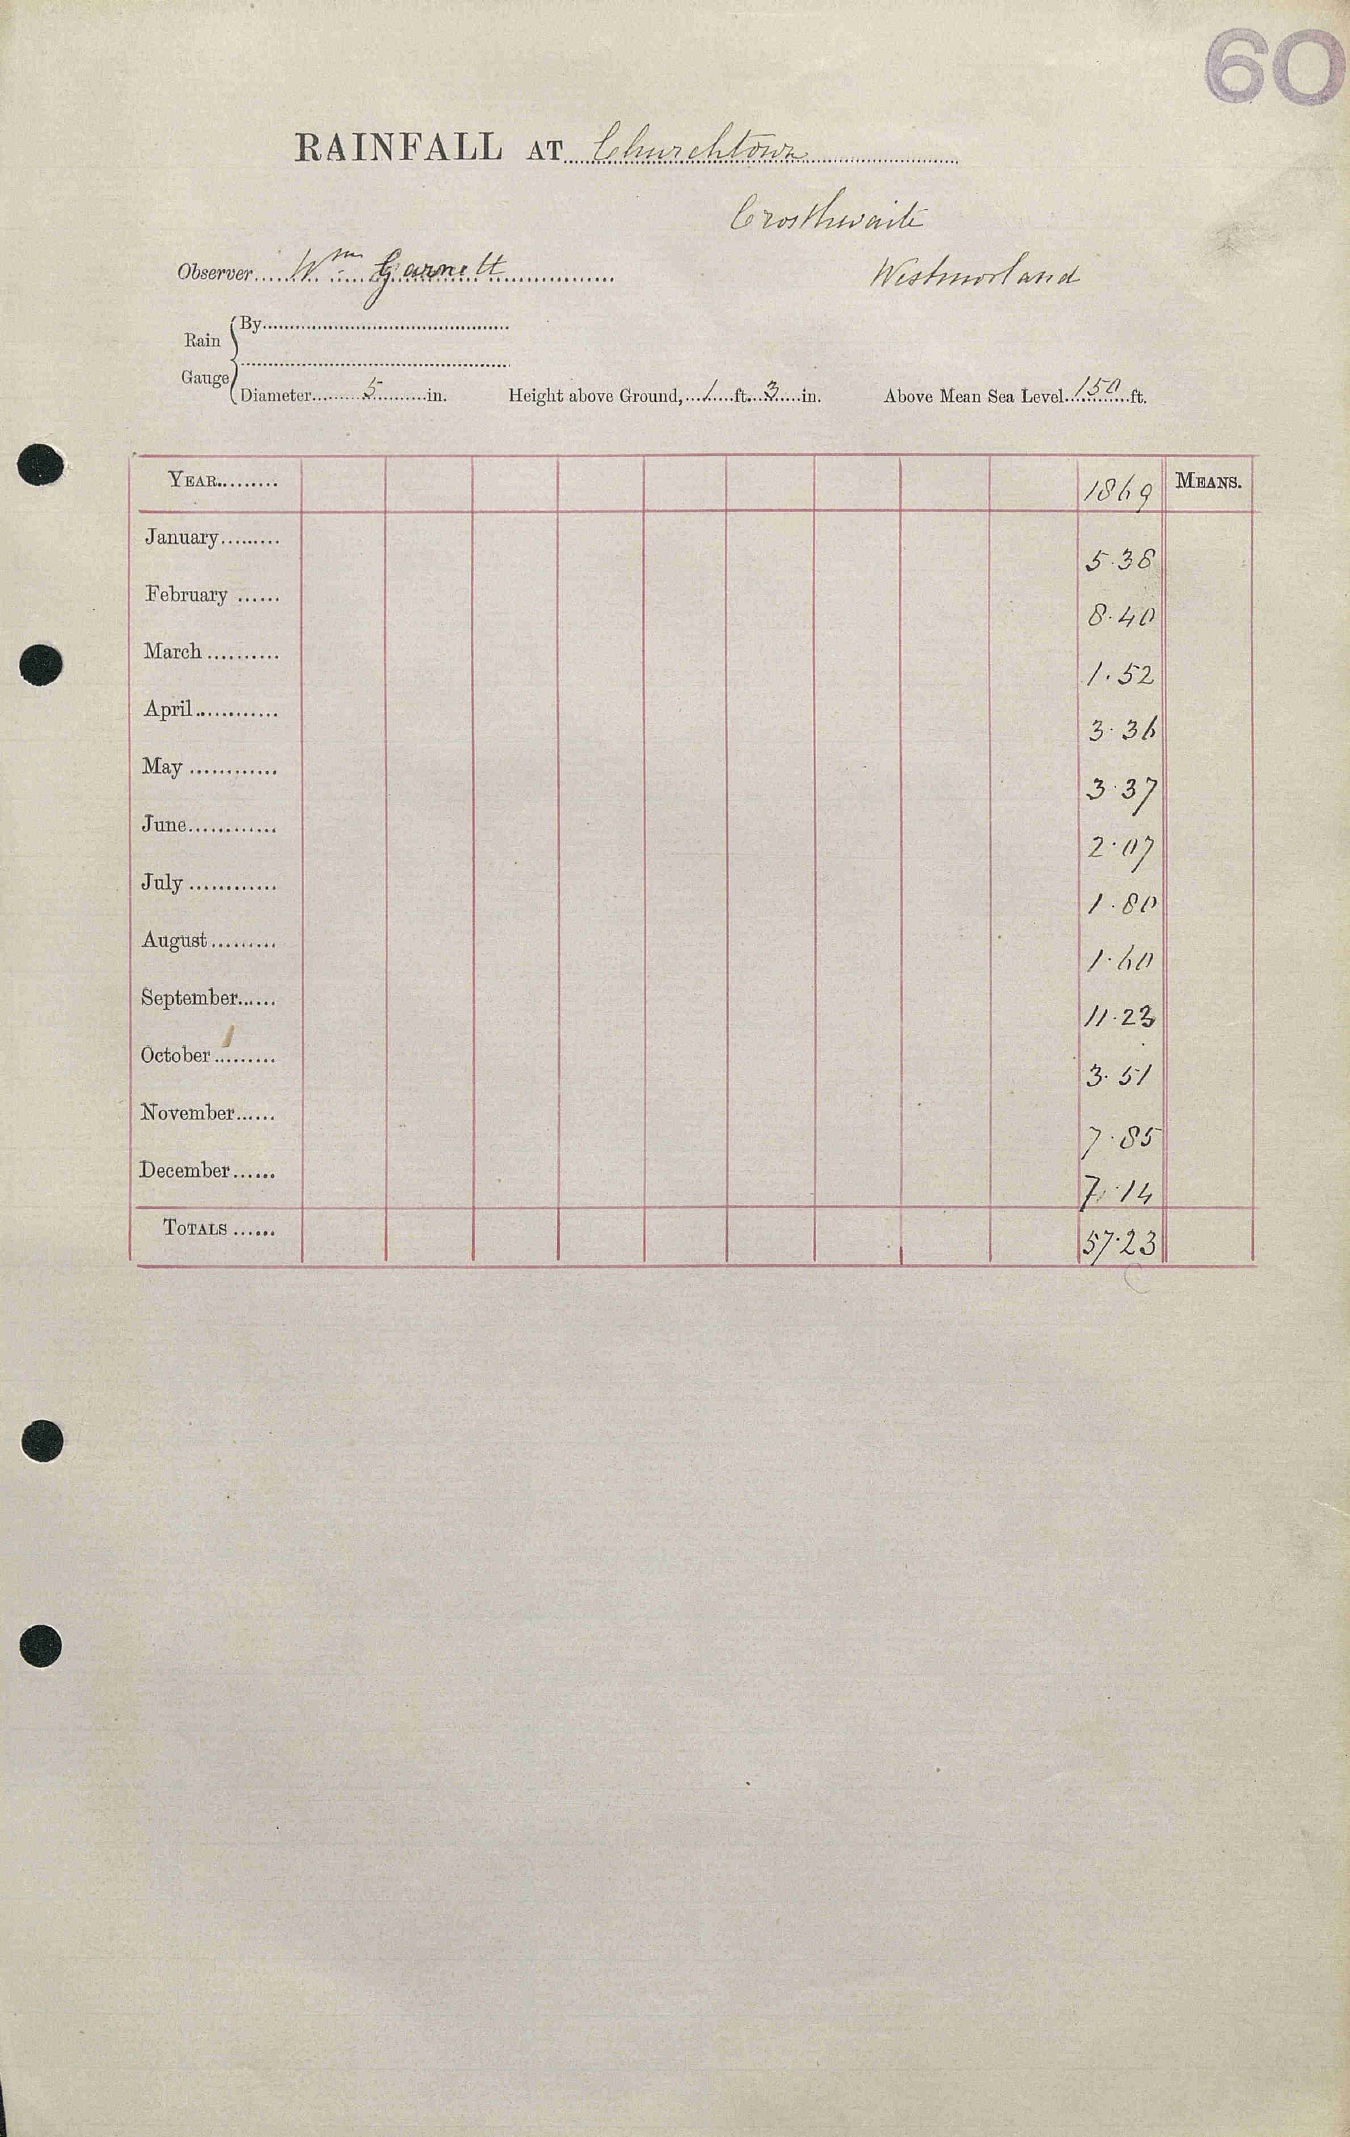 60
RAINFALL AT Churchtown
Crosthwaite
Observer Wm Garnett
Westmorland
Rain Gauge
By
Diameter 5 in. Height above Ground, 1 ft. 3 in. Above Mean Sea Level 150 ft.
YEAR 1869 MEANS.
January 5.38
February 8.40
March 1.52
April 3.36
May 3.37
June 2.07
July 1.80
August 1.60
September 11.23
October 3.51
November 7.85
December 7.14
TOTALS 57.23